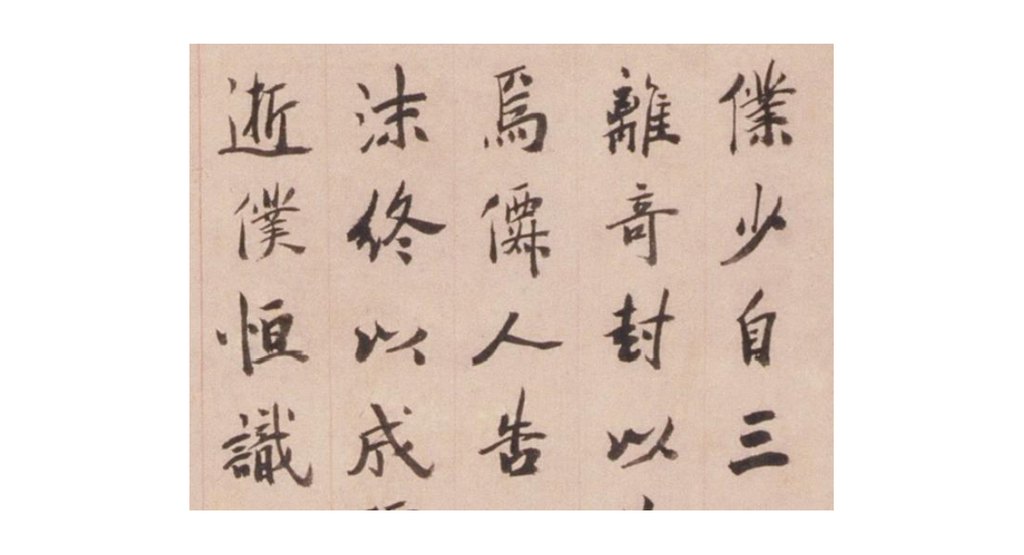 僕少自三
離奇封以
焉僊人告
沫終以成
逝僕恒識